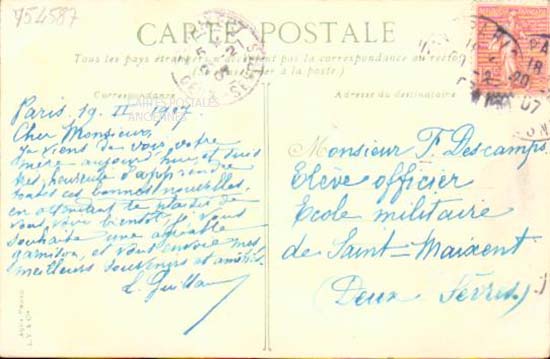 754587
CARTE POSTALE
Tous les pays étrangers n'acceptent pas la correspondance au recto
se à la poste.)
Correspondance
Adresse du destinataire
CARTES POSTALES
Paris, 19. II 1907
Cher Monsieur,
Je viens de voir votre
mère aujourd'hui, et suis
très heureuse d'apprendre
toutes ces bonnes nouvelles,
en attendant le plaisir de
vous voir bientôt je vous
souhaite une agréable
garnison, et vous envoie mes
meilleurs souvenirs et amitiés.
Monsieur F. Descamps
Elève officier
Ecole militaire
de Saint-Maixent
(Deux Sèvres)
PA
18
2 - 20
07